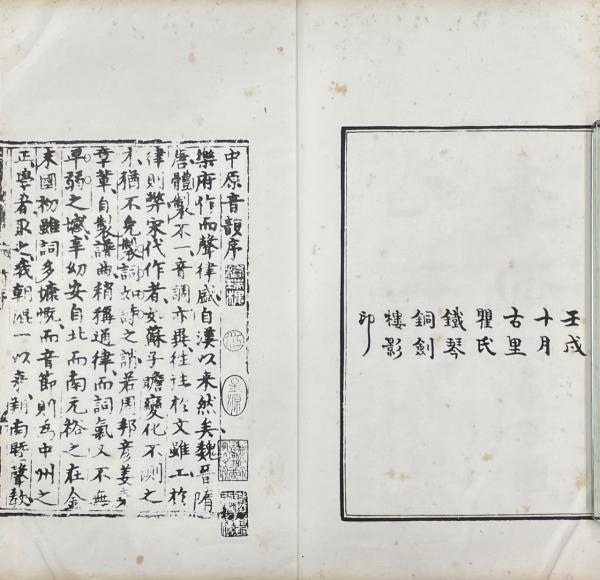 壬戌
十月
古里
瞿氏
鐵琴
銅劍
樓影
印
中原音韻序
樂府作而聲律盛自漢以来然矣魏晉隋
唐體製不一音調亦異往往於文雖工於
律則弊宋代作者如蘇子瞻變化不測之
才猶不免製詞如詩之誚若周邦彥姜堯
章輩自製譜曲稍稱通律而詞氣又不無
卑弱之憾辛幼安自北而南元裕之在金
末國初雖詞多慷慨而音節則爲中州之
正學者取之我朝混一以来朔南曁聲教